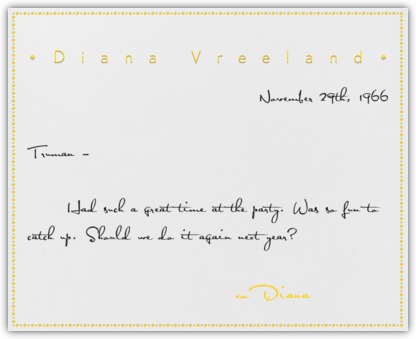 • Diana Vreeland •
November 29th, 1966
Truman –
Had such a great time at the party. Was so fun to
catch up. Should we do it again next year?
xx, Diana